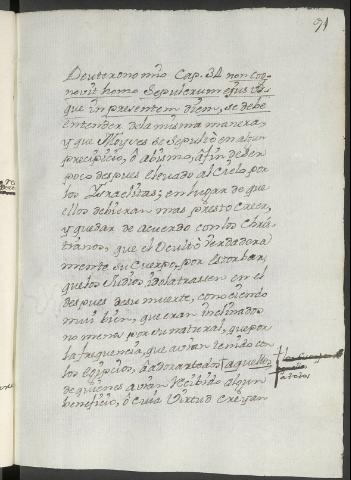 91
Deuteronomio Cap. 34 non cog-
novit homo Sepulcrum ejus us-
que in presentem diem, se debe
entender de la misma manera,
y que Moyses se Sepultò en alto
precipicio, ò abismo, à fin de ser
poco despues elevado al Cielo, por
los Israelitas; en lugar de que
ellos debieran mas presto creer,
y quedar de acuerdo con los Chris-
tianos, que el Ocultò verdadera
mente su Cuerpo, por estorbar
que los Judios idolatrassen en el
despues de su muerte, conociendo
mui bien, que eran inclinados
no menos por su natural, que por
la frequencia, que avian tenido con
los Egipcios, à adorar todos aquellos
a todos,
de quienes avian recibido algun
beneficio, ò cuia Virtud creyan